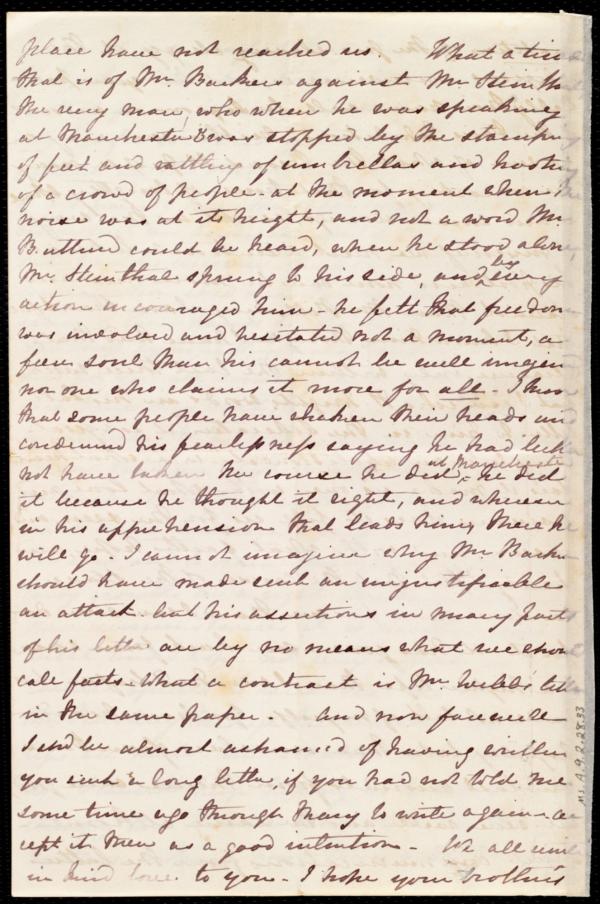 place have not reached us. What a
that is of Mr. Barkers against Mr Steinthal
the very man, who when he was speaking
at Manchester & was stopped by the stamping
of feet and rattling of umbrellas and hooting
of a crowd of people - at the moment when the
noise was at its height, and not a word Mr.
could be heard, when he stood alone,
Mr. Steinthal sprung to his side, and by every
action incouraged him - he felt that freedom
was involved and hesitated not a moment, a
freer soul than his cannot be well imagin
nor one who claims it more for all - I know
that some people have shaken their heads and
condemned his fearlessness saying he had better
not have taken the course he did at Manchester, - he did
it because he thought it right, and wheresoe
in his apprehension that leads him, there he
will go - I cannot imagine why Mr Barker
should have made such an unjustifiable
an attack - but his assertions in many parts
of his letter are by no means what we should
call facts. What a contrast is Mr. Webb's letter
in the same paper. - And now farewell
I shd be almost ashamed of having written
you such a long letter, if you had not told me
some time ago through Mary to write again - ac
cept it then as a good intention - We all unite
in kind love to you - I hope your brother's
Ms. A.9.2.28.33